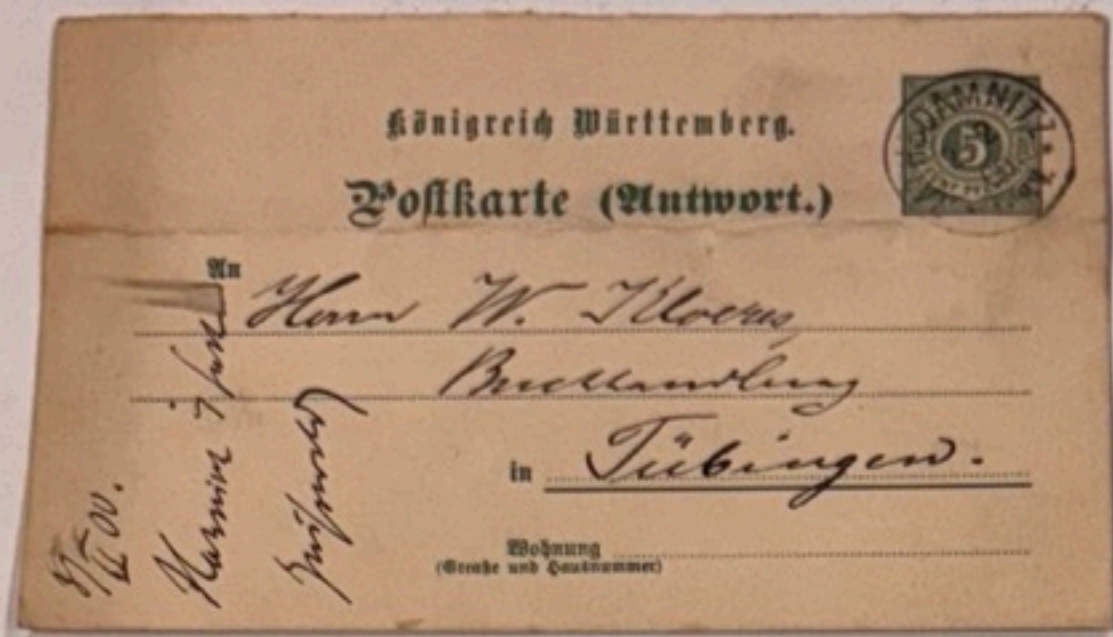 Königreich Württemberg.
Postkarte (Antwort.)
DAMNITZ
5
An Herrn W. Kloeres
Buchhandlung
in Tübingen.
Wohnung
(Straße und Hausnummer)